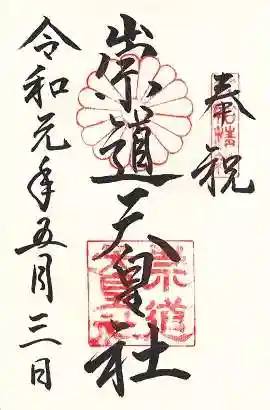 奉祝
崇道天皇社
令和元年五月三日
崇道天皇社